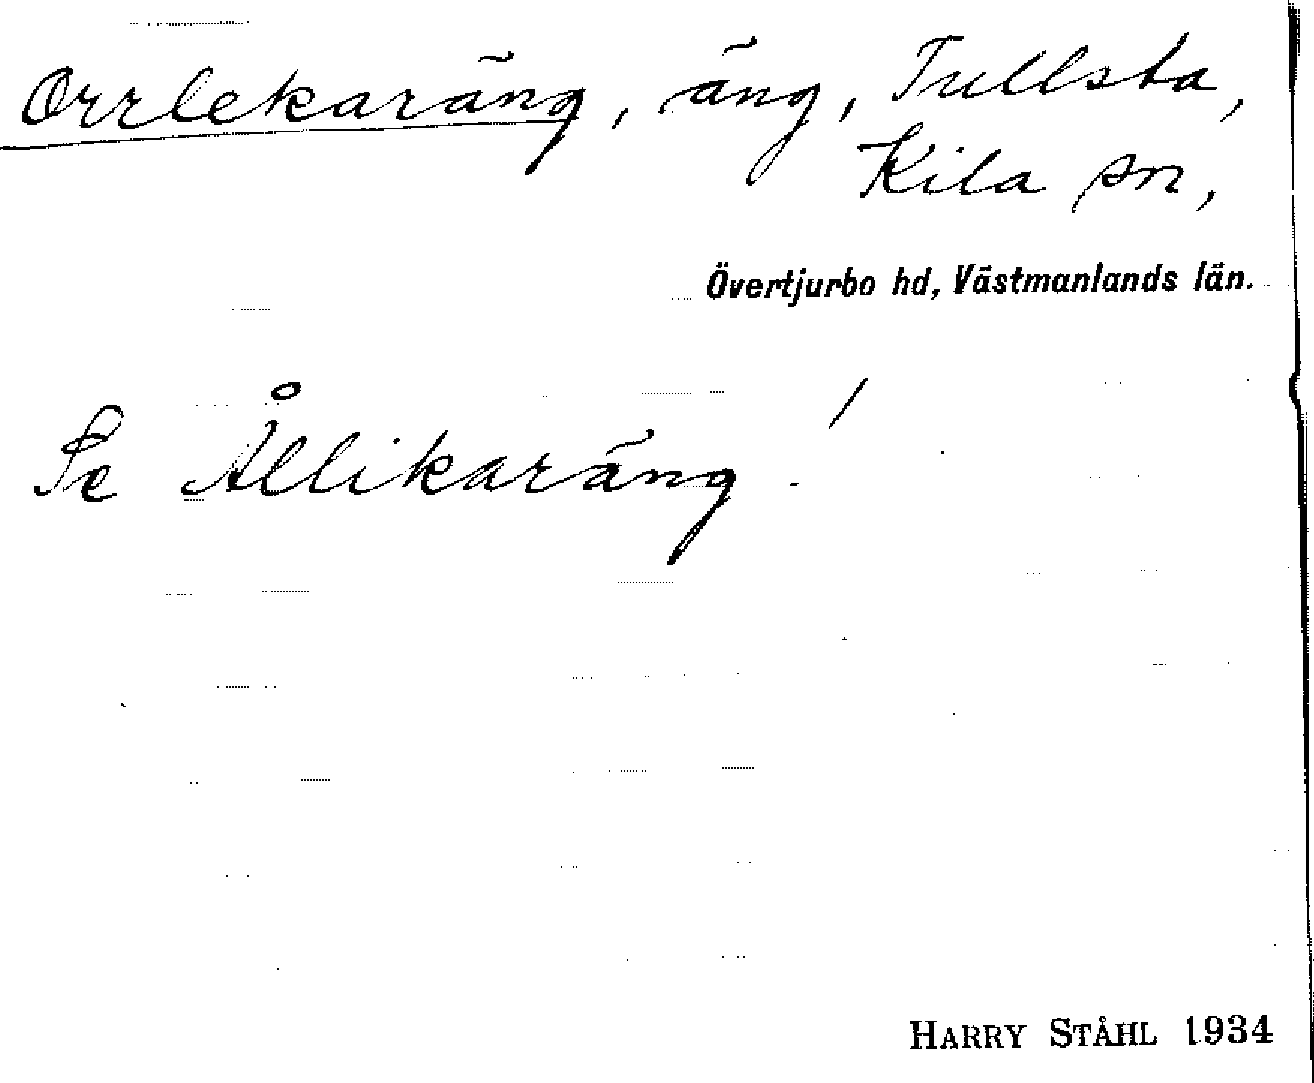 Orrlekaräng, äng, Tullsta,
Kila sn,
Övertjurbo hd, Västmanlands län.
Se Ållikaräng!
HARRY STÅHL 1934